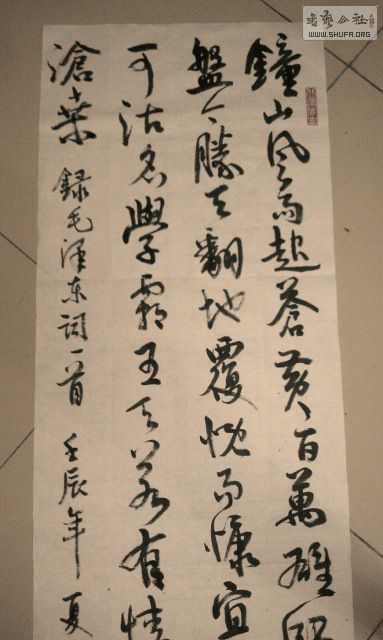 書藝公社
WWW.SHUFA.ORG
鐘山风雨起蒼黄百萬雄
盤今勝天翻地覆慨而慷宜
可沽名學霸王天若有情
滄桑 録毛泽东词一首 壬辰年 夏